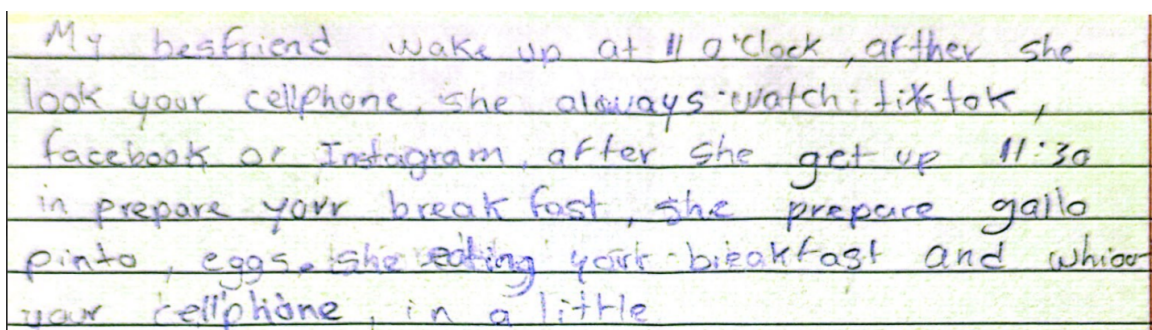 My besfriend wake up at 11 o'clock, afther she
look your cellphone, she always watch: tiktok,
facebook or Instagram, after she get up 11:30
in prepare your breakfast, she prepare gallo
pinto, eggs. she eating your breakfast and
your cellphone, in a little